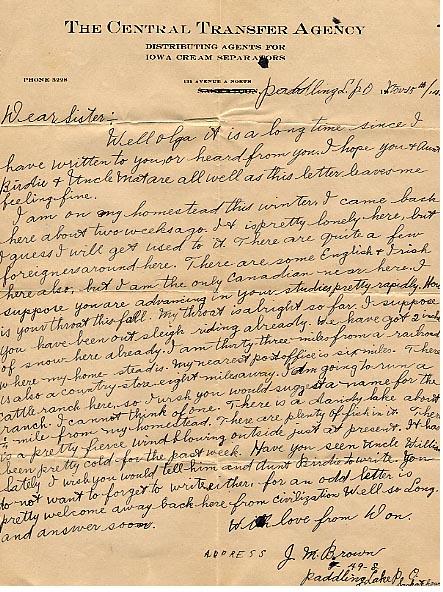 THE CENTRAL TRANSFER AGENCY
DISTRIBUTING AGENTS FOR
IOWA CREAM SEPARATORS
PHONE 3228
135 AVENUE A NORTH
Paddling L. P.O. Nov 15th/14
Dear Sister:
Well Olga it is a long time since I
have written to you, or heard from you. I hope you & Aunt
Birdie & Uncle Mat are all well as this letter leaves me
feeling fine.
I am on my homestead this winter, I came back
here about two weeks ago. It is pretty lonely here, but
I guess I will get used to it. There are quite a few
foreigners around here. There are some English & Irish
here also, but I am the only Canadian near here. I
suppose you are advancing in your studies pretty rapidly. How
is your throat this fall. My throat is alright so far. I suppose
you have been out sleigh riding already. We have got 2 inches
of snow here already. I am thirty three miles from a railroad
where my homestead is. My nearest post office is six miles. There
is also a country store eight miles away. I am going to run a
cattle ranch here, so I wish you would suggest a name for the
ranch. I cannot think of one. There is a dandy lake about
½ mile from my homestead. There are plenty of fish in it. There
is a pretty fierce wind blowing outside just at present. It has
been pretty cold for the past week. Have you seen Uncle Willie
lately. I wish you would tell him and Aunt Birdie to write. You
do not want to forget to write either. for an odd letter is
pretty welcome away back here from civilization Well so Long.
and answer soon.
With love from Won.
ADDRESS J. M. Brown
49-8
Paddling Lake P.O.